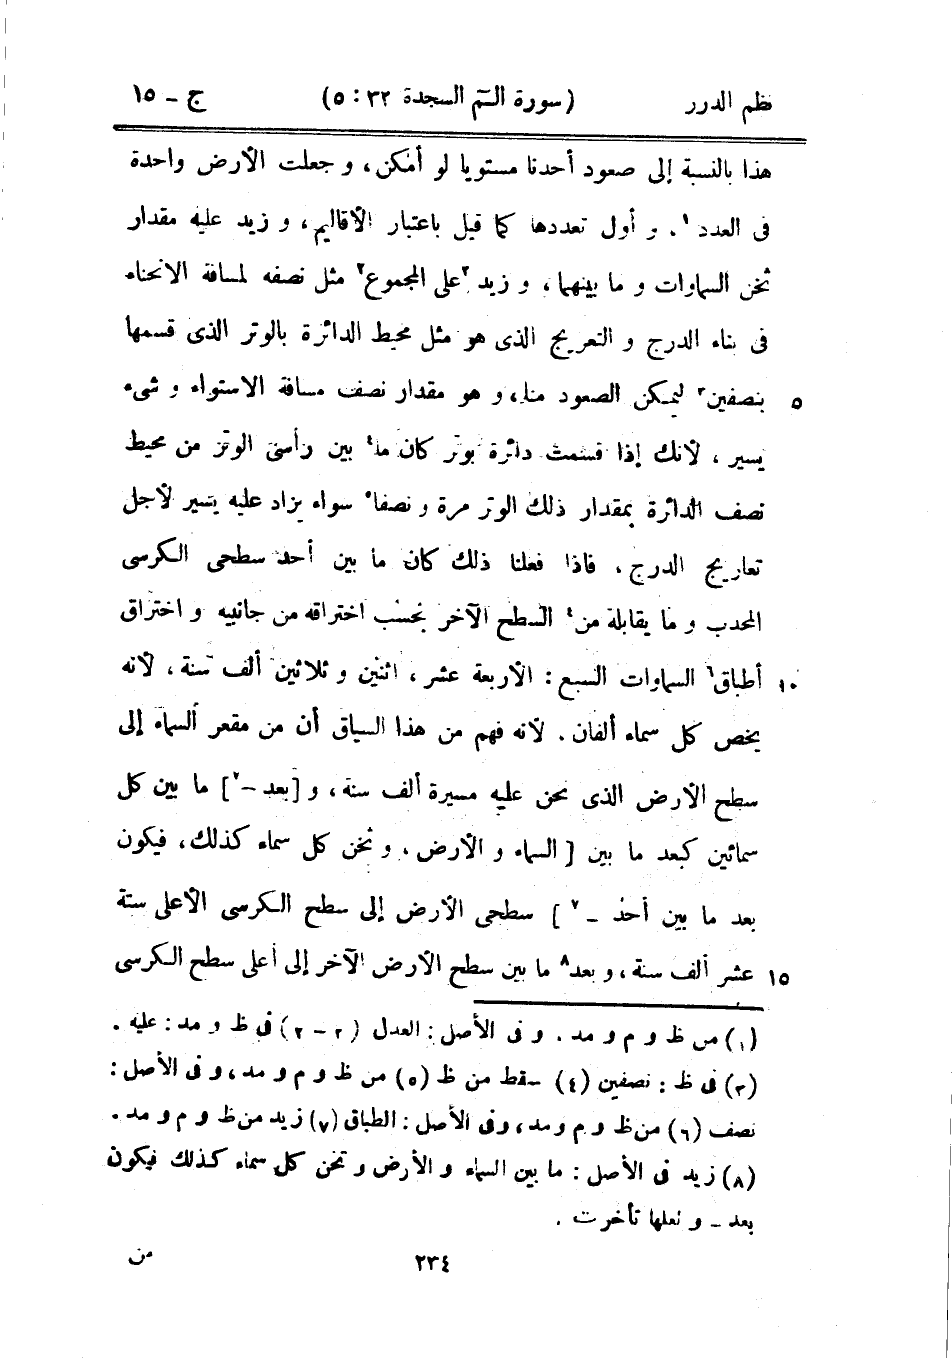 نظم الدرر (سورة الۤمۤ السجدة ٣٢ : ٥) ج - ١٥
هذا بالنسبة إلى صعود أحدنا مستويا لو أمكن، و جعلت الأرض واحدة
فى العدد١، و أول تعددها كما قيل باعتبار الأقاليم، و زيد عليه مقدار
ثخن السماوات و ما بينهما، و زيد ٢على المجموع٢ مثل نصفه لمسافة الانحناء
فى بناء الدرج و التعريج الذى هو مثل محيط الدائرة بالوتر الذى قسمها
٥ بنصفين٣ ليمكن الصعود منا، و هو مقدار نصف مسافة الاستواء و شىء
يسير، لأنك إذا قسمت دائرة بوتر كان ما٤ بين رأسى الوتر من محيط
نصف الدائرة بمقدار ذلك الوتر مرة و نصفا٥ سواء يزاد عليه يسير لأجل
تعاريج الدرج، فاذا فعلنا ذلك كان ما بين أحد سطحى الكرسى
المحدب و ما يقابله من٤ السطح الآخر بحسب اختراقه من جانبيه و اختراق
١٠ أطباق٦ السماوات السبع: الأربعة عشر، اثنين و ثلاثين ألف سنة، لأنه
يخص كل سماء ألفان. لأنه فهم من هذا السياق أن من مقعر السماء إلى
سطح الأرض الذى نحن عليه مسيرة ألف سنة، و [بعد -٧] ما بين كل
سمائين كبعد ما بين [السماء و الأرض، و ثخن كل سماء كذلك، فيكون
بعد ما بين أحد -٧] سطحى الأرض إلى سطح الكرسى الأعلى ستة
١٥ عشر ألف سنة، و بعد٨ ما بين سطح الأرض الآخر إلى أعلى سطح الكرسى
(١) من ظ و م و مد، و فى الأصل: العدل (٢ - ٢) فى ظ و مد: عليه.
(٣) فى ظ: نصفين (٤) سقط من ظ (٥) من ظ و م و مد، و فى الأصل:
نصف (٦) من ظ و م و مد، و فى الأصل: الطباق (٧) زيد من ظ و م و مد.
(٨) زيد فى الأصل: ما بين السماء و الأرض و ثخن كل سماء كذلك فيكون
بعد - و لعلها تأخرت.
٢٣٤ من